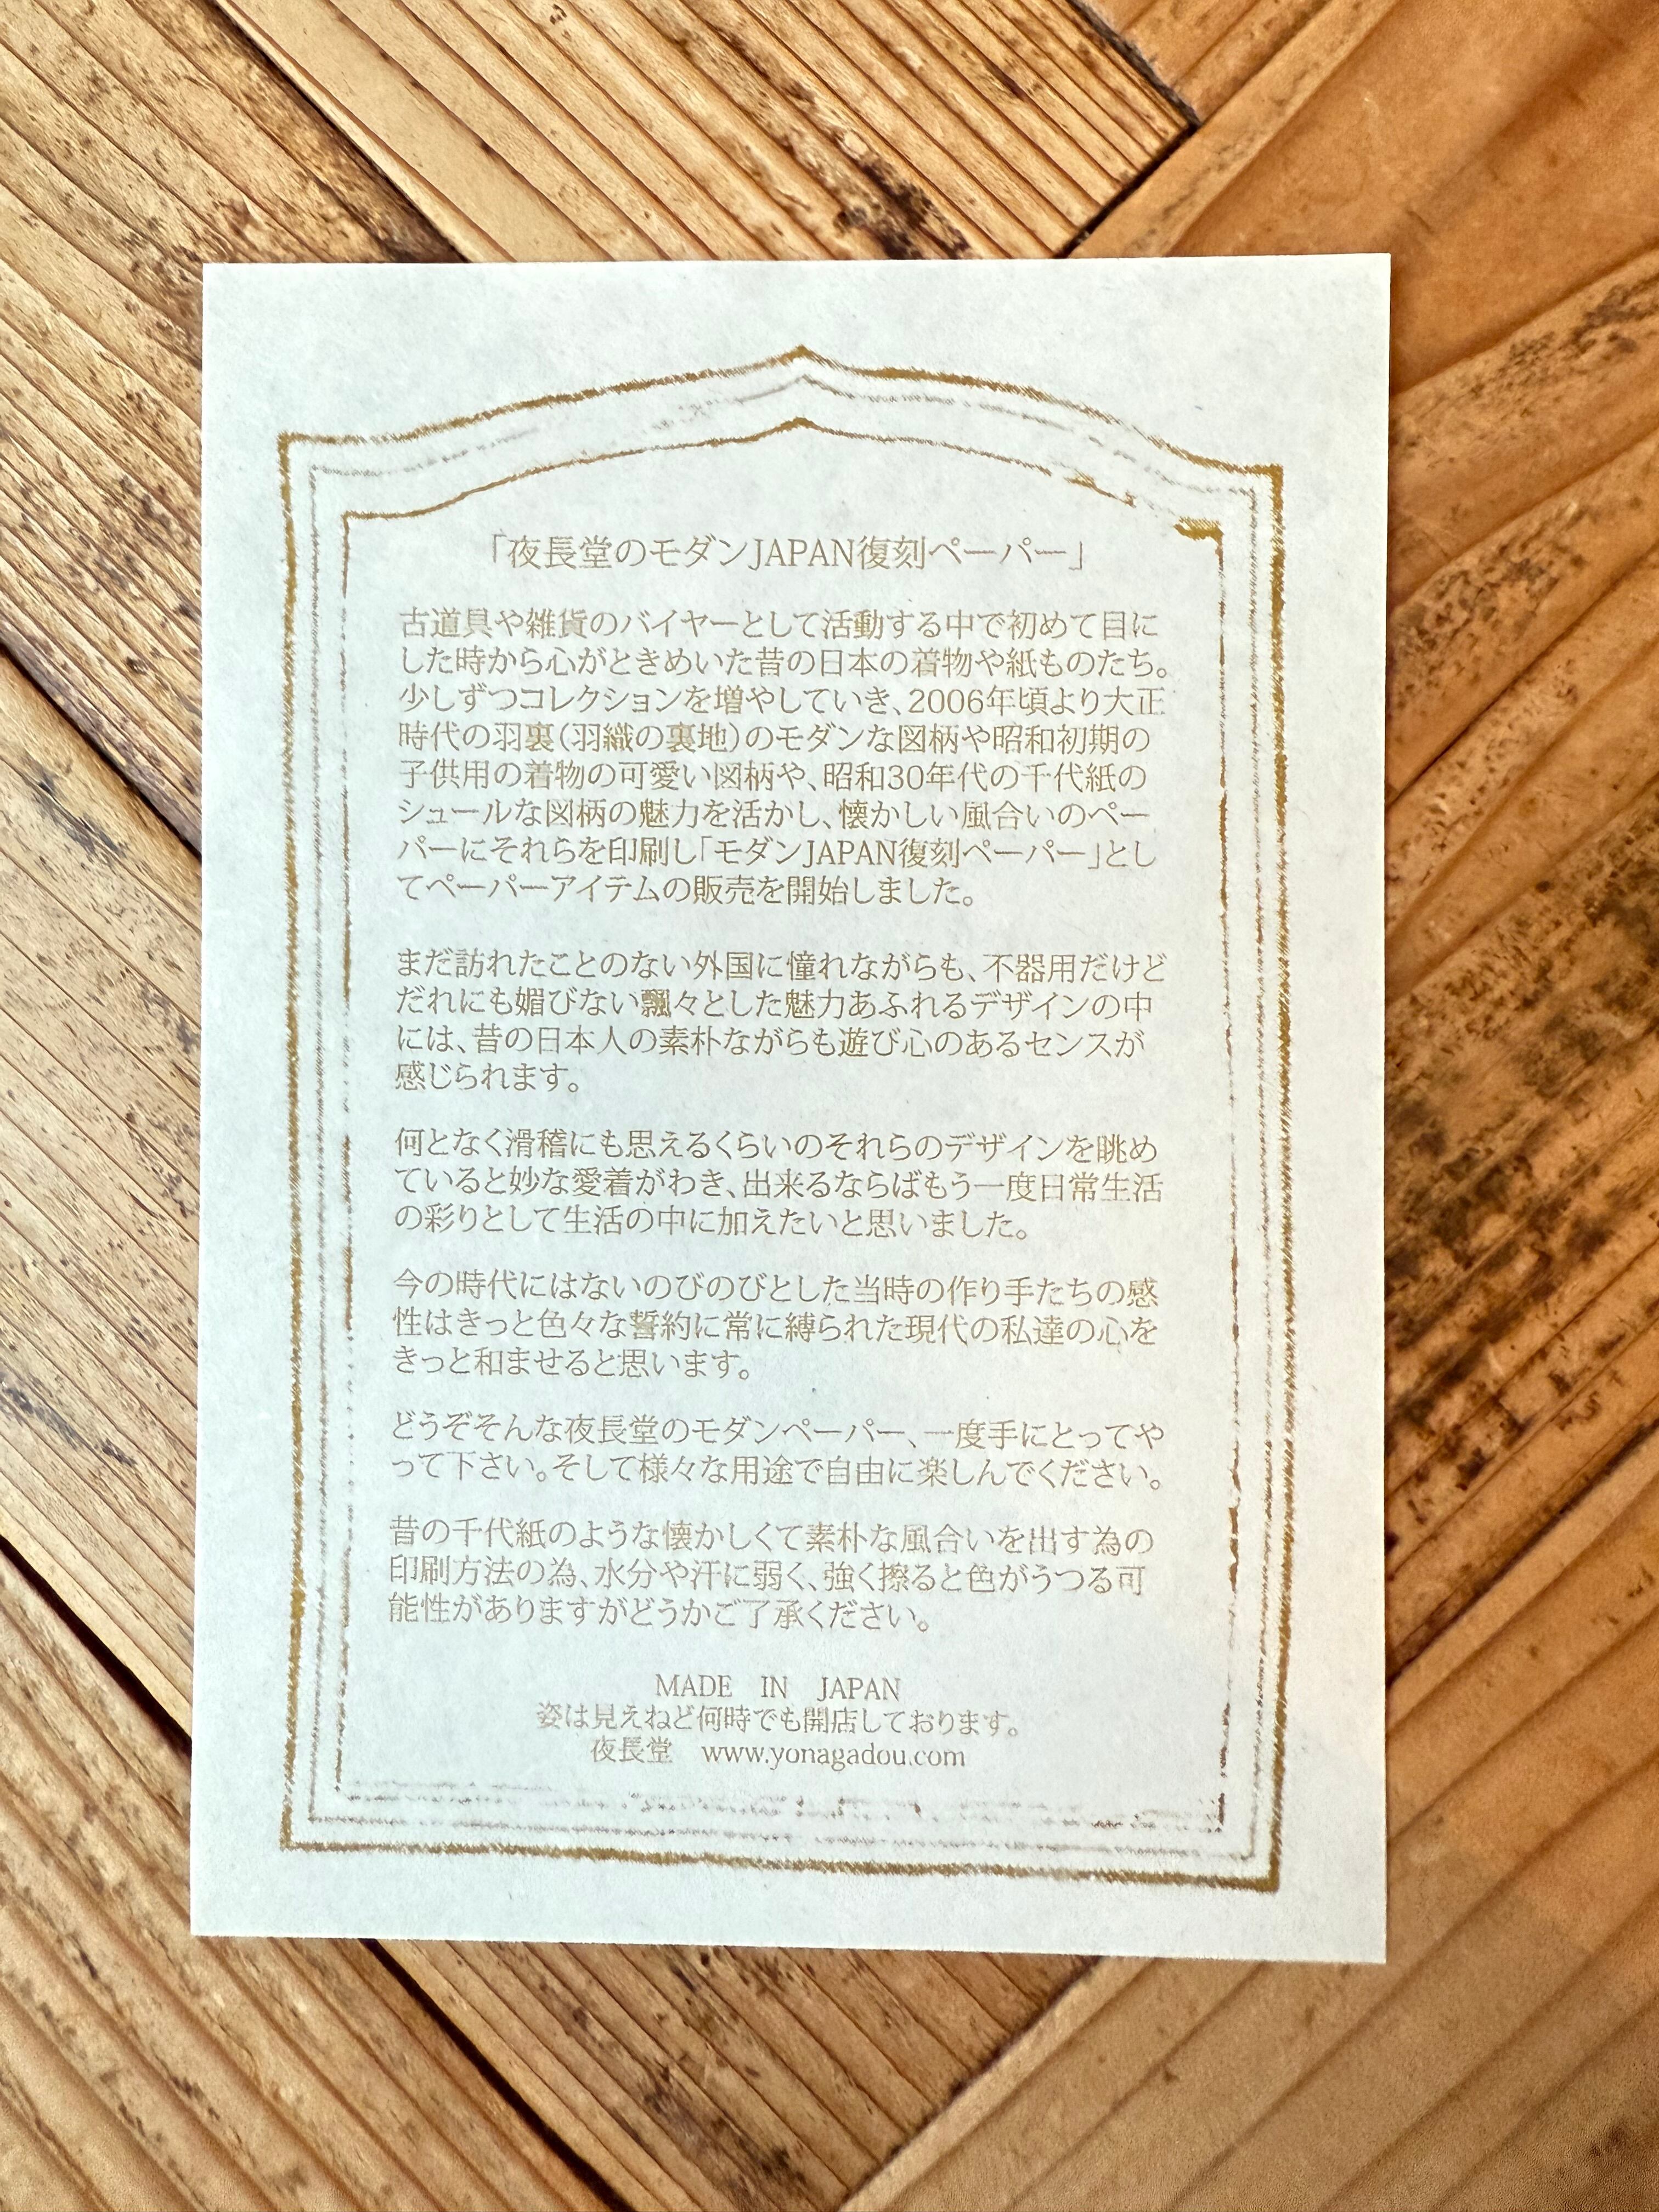 「夜長堂のモダンJAPAN復刻ペーパー」
古道具や雑貨のバイヤーとして活動する中で初めて目に
した時から心がときめいた昔の日本の着物や紙ものたち。
少しずつコレクションを増やしていき、2006年頃より大正
時代の羽裏(羽織の裏地)のモダンな図柄や昭和初期の
子供用の着物の可愛い図柄や、昭和30年代の千代紙の
シュールな図柄の魅力を活かし、懐かしい風合いのペー
パーにそれらを印刷し「モダンJAPAN復刻ペーパー」とし
てペーパーアイテムの販売を開始しました。
まだ訪れたことのない外国に憧れながらも、不器用だけど
だれにも媚びない飄々とした魅力あふれるデザインの中
には、昔の日本人の素朴ながらも遊び心のあるセンスが
感じられます。
何となく滑稽にも思えるくらいのそれらのデザインを眺め
ていると妙な愛着がわき、出来るならばもう一度日常生活
の彩りとして生活の中に加えたいと思いました。
今の時代にはないのびのびとした当時の作り手たちの感
性はきっと色々な誓約に常に縛られた現代の私達の心を
きっと和ませると思います。
どうぞそんな夜長堂のモダンペーパー、一度手にとってや
って下さい。そして様々な用途で自由に楽しんでください。
昔の千代紙のような懐かしくて素朴な風合いを出す為の
印刷方法の為、水分や汗に弱く、強く擦ると色がうつる可
能性がありますがどうかご了承ください。
MADE IN JAPAN
姿は見えねど何時でも開店しております。
夜長堂 www.yonagadou.com